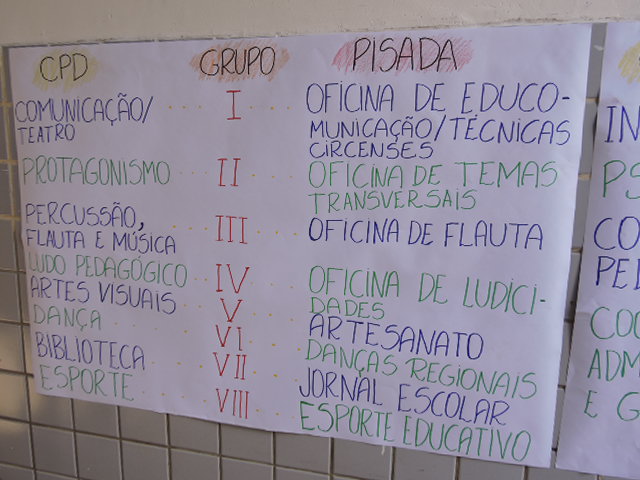 CPD GRUPO PISADA
COMUNICAÇÃO/ I OFICINA DE EDUCO-
TEATRO MUNICAÇÃO/TÉCNICAS
CIRCENSES
PROTAGONISMO II OFICINA DE TEMAS
TRANSVERSAIS
PERCUSSÃO, III OFICINA DE FLAUTA
FLAUTA E MÚSICA
LUDO PEDAGÓGICO IV OFICINA DE LUDICI-
DADES
ARTES VISUAIS V ARTESANATO
DANÇA VI DANÇAS REGIONAIS
BIBLIOTECA VII JORNAL ESCOLAR
ESPORTE VIII ESPORTE EDUCATIVO
IN
PS
CO
PED
COO
ADM
E G